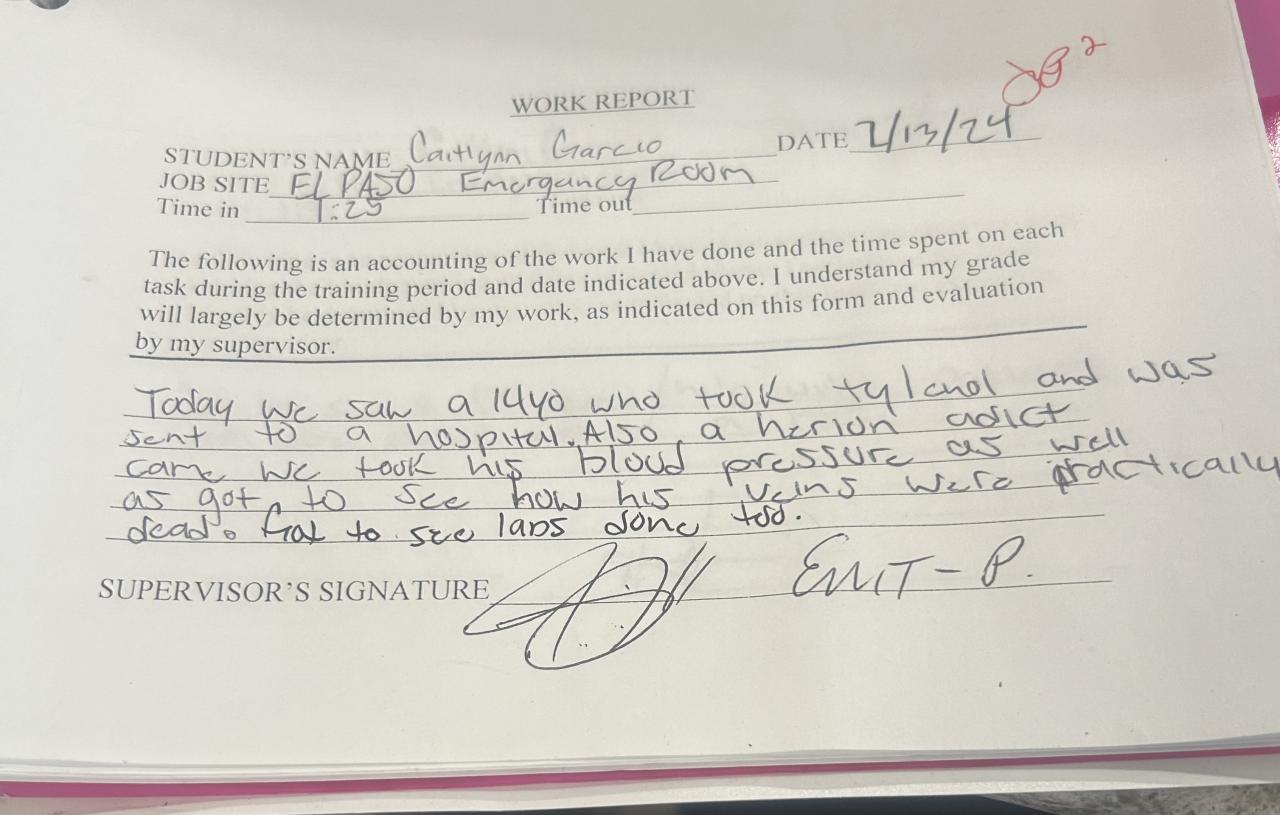 WORK REPORT
STUDENT'S NAME Caitlynn Garcia DATE 2/13/24
JOB SITE EL PASO Emergancy Room
Time in 1:25 Time out
The following is an accounting of the work I have done and the time spent on each
task during the training period and date indicated above. I understand my grade
will largely be determined by my work, as indicated on this form and evaluation
by my supervisor.
Today we saw a 14yo who took tylenol and was
sent to a hospital. Also a herion adict
came we took his bloud pressure as well
as got to see how his veins were practically
dead. Got to see labs done too.
SUPERVISOR'S SIGNATURE EMT-P.